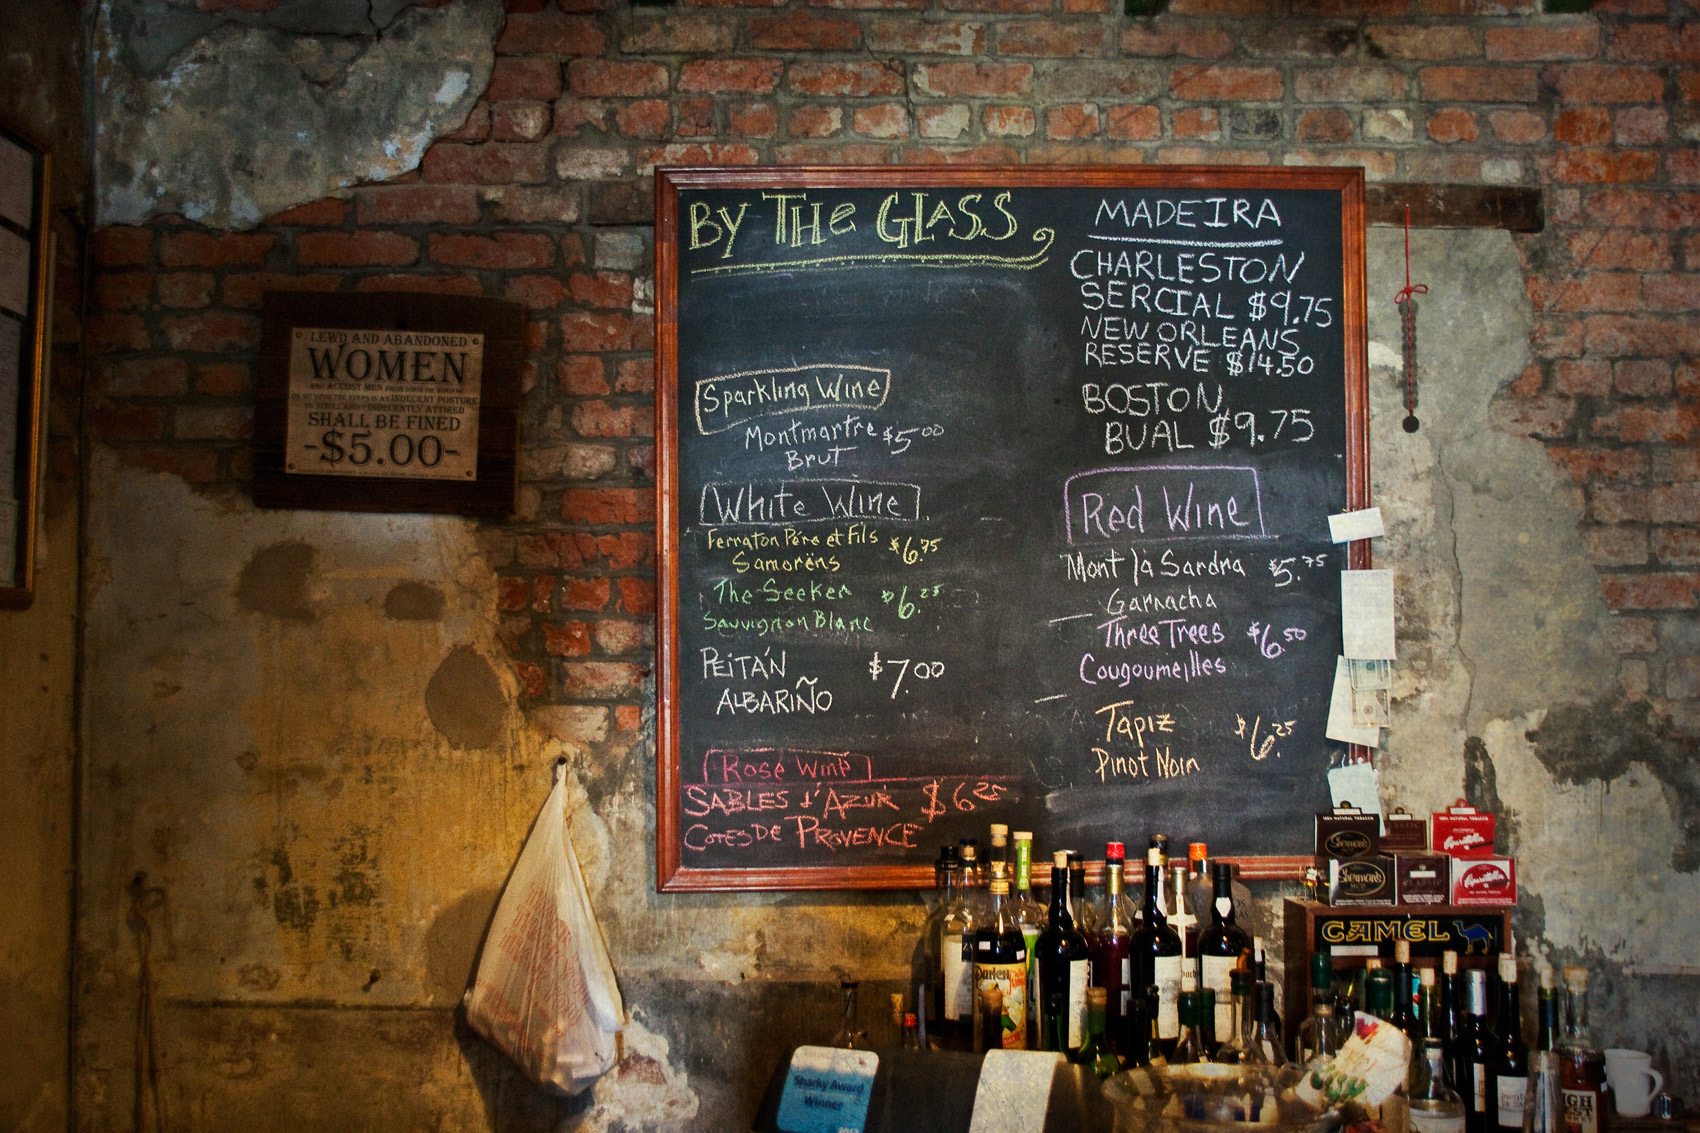 LEWD AND ABANDONED
WOMEN
WHO ACCOST MEN FROM
INDECENT POSTURE
INDECENTLY ATTIRED
SHALL BE FINED
-$5.00-
BY THE GLASS
Sparkling Wine
Montmartre $5.00
Brut
White Wine
Ferraton Père et Fils $6.75
Samorëns
The Seeker $6.25
Sauvignon Blanc
PEITÁN $7.00
ALBARIÑO
Rosé Wine
SABLES d'AZUR $6.25
COTES DE PROVENCE
MADEIRA
CHARLESTON
SERCIAL $9.75
NEW ORLEANS
RESERVE $14.50
BOSTON
BUAL $9.75
Red Wine
Mont la Sardna $5.75
Garnacha
Three Trees $6.50
Cougoumeilles
Tapiz $6.25
Pinot Noir
Sherman's
Sherman's
CLASSIC
CAMEL
Sharky Award
Winner